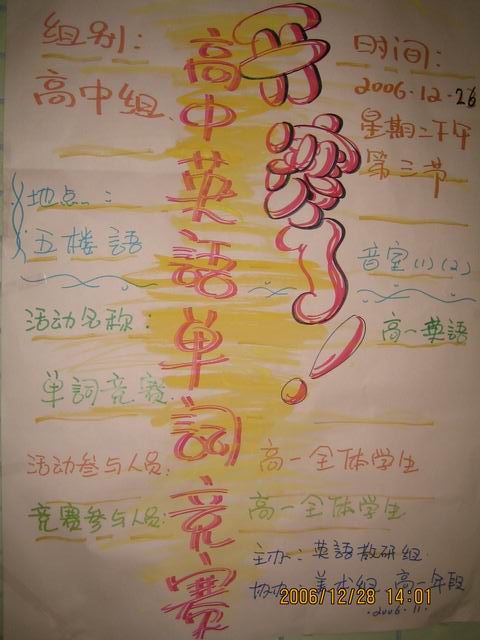 开赛了！
高中英語单詞竞赛
组别：
高中组
时间：
2006.12.26
星期二下午
第三节
地点：
五楼語音室(1)(2)
活动名称：
高一英語
单詞竞赛
活动参与人员：高一全体学生
竞赛参与人员：高一全体学生
主办：英語教研组
协办：美术组 高一年段
2006.11.
2006/12/28 14:01